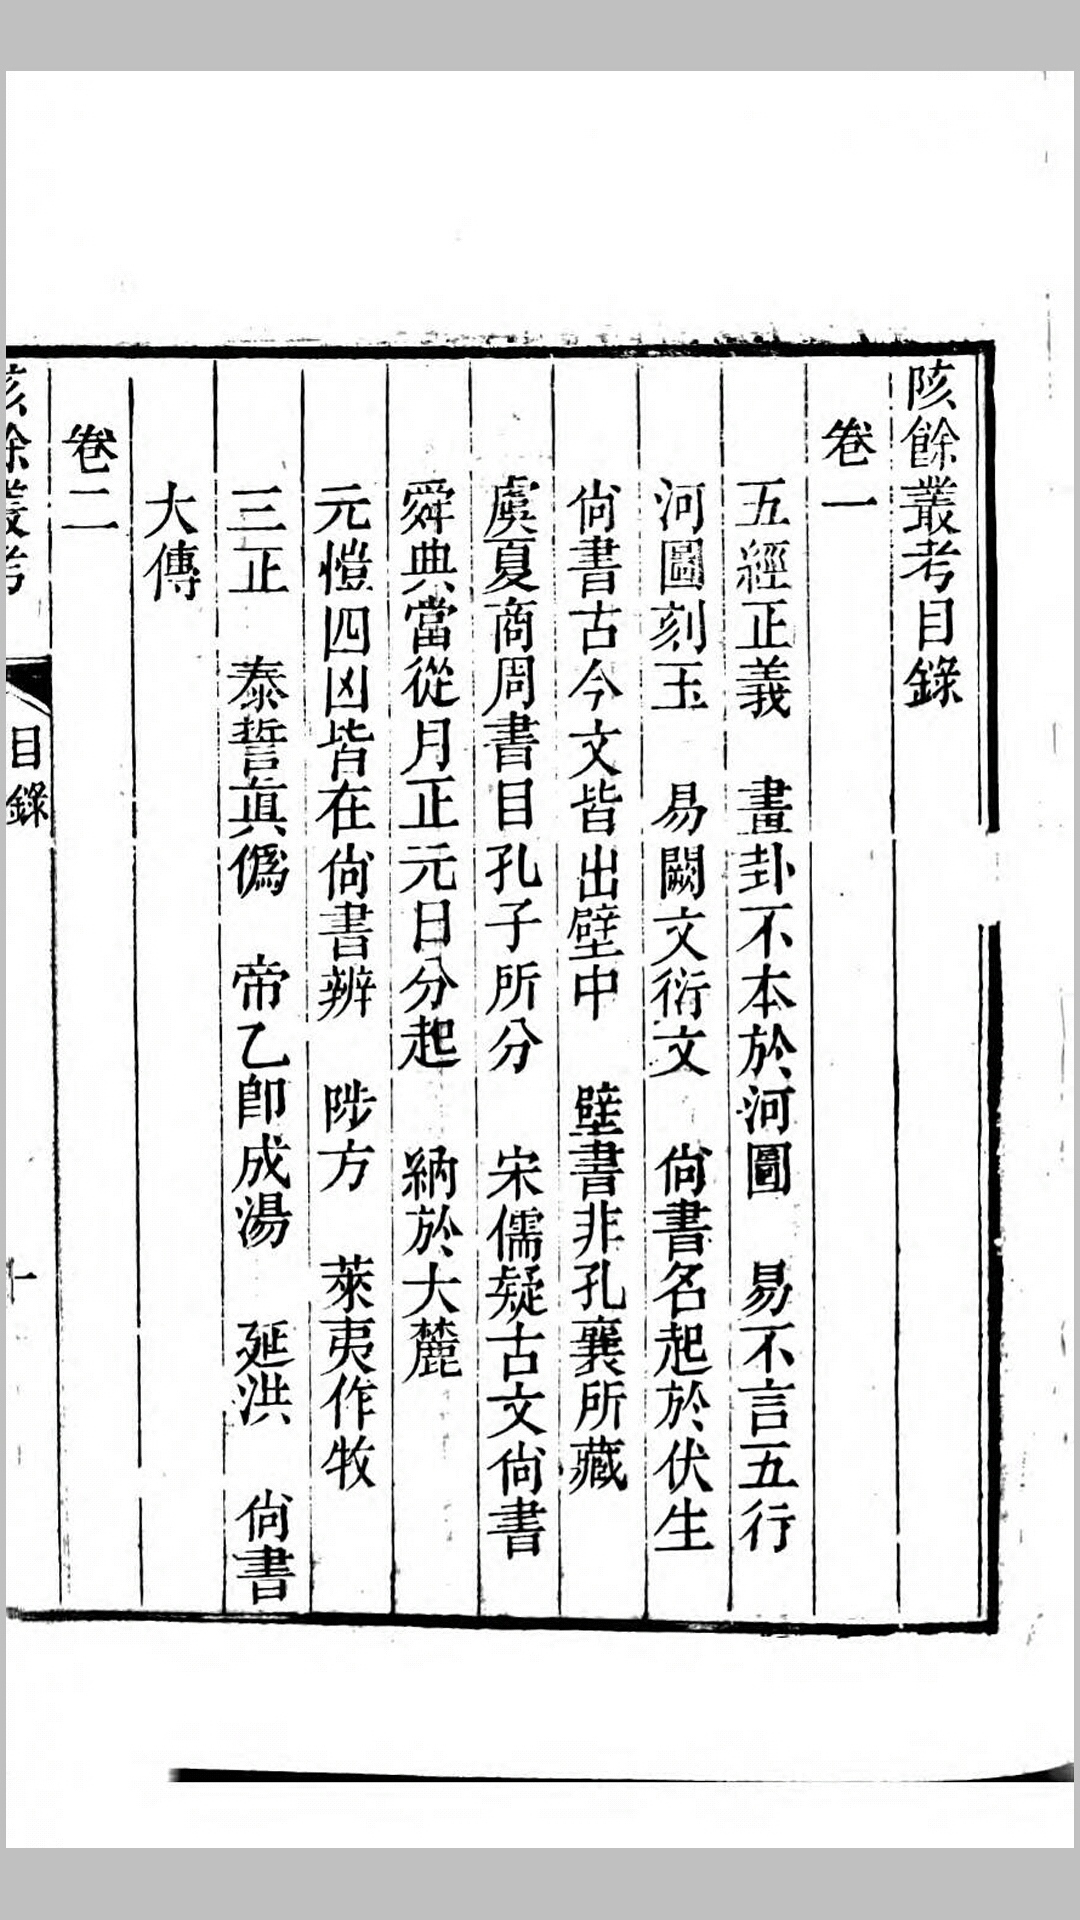 陔餘叢考目錄
卷一
五經正義　畫卦不本於河圖　易不言五行
河圖刻玉　易闕文衍文　尙書名起於伏生
尙書古今文皆出壁中　壁書非孔襄所藏
虞夏商周書目孔子所分　宋儒疑古文尙書
舜典當從月正元日分起　納於大麓
元愷四凶皆在尙書辨　陟方　萊夷作牧
三正　泰誓眞僞　帝乙卽成湯　延洪　尙書
大傳
卷二
陔餘叢考　目錄